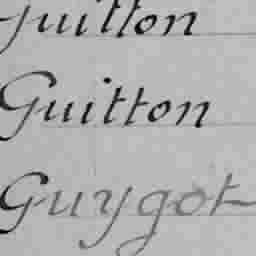 Guitton
Guitton
Guygot